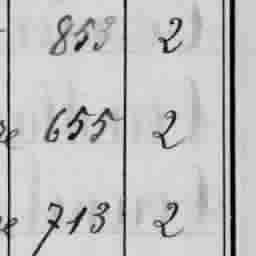 853 2
655 2
713 2